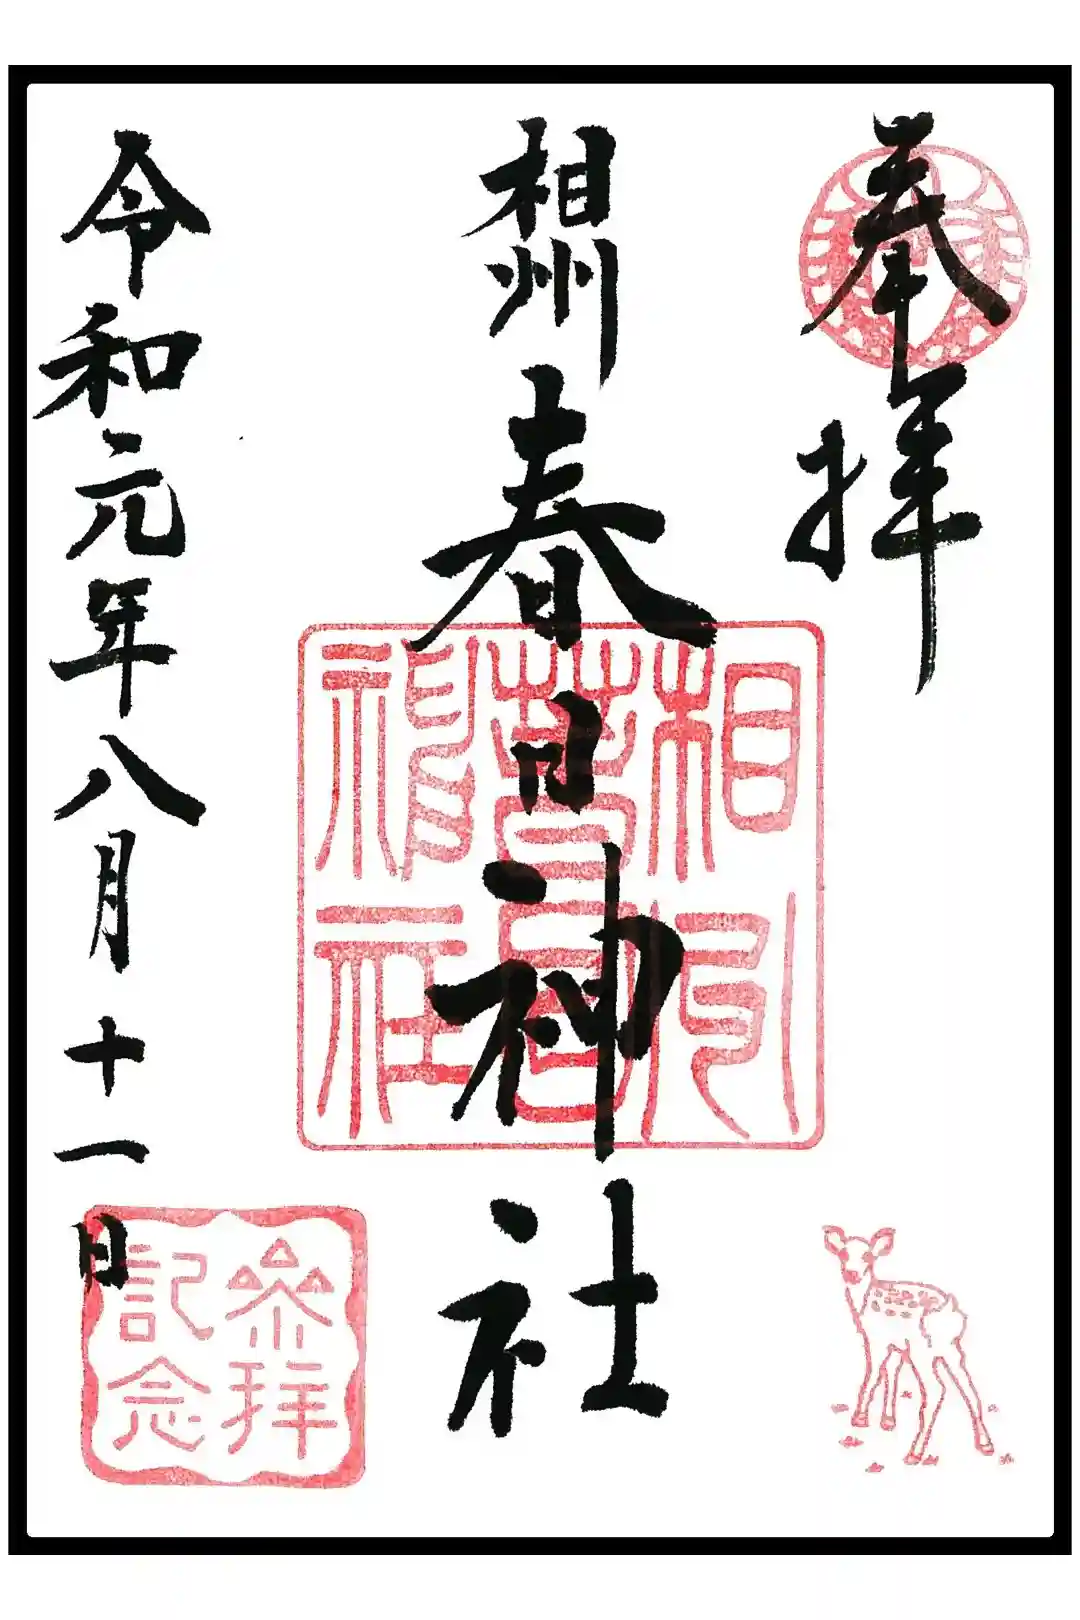 奉拝
相州
春日神社
令和元年八月十一日
相州
春日
神社
参拝
記念